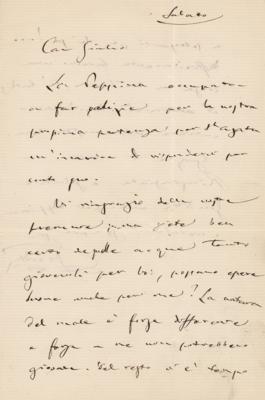 Sabato
Caro Giulio
La Peppina occupata
a far valigie per la nostra
prossima partenza per St Agata
m'incarica di rispondervi per
conto suo.
Vi ringrazio della vostra
premura, ma siete ben
certo che quelle acque tanto
giovevoli per voi, possano essere
buone anche per me? La natura
del male è forse differente
e forse a me non potrebbero
giovare. Del resto v'è tempo